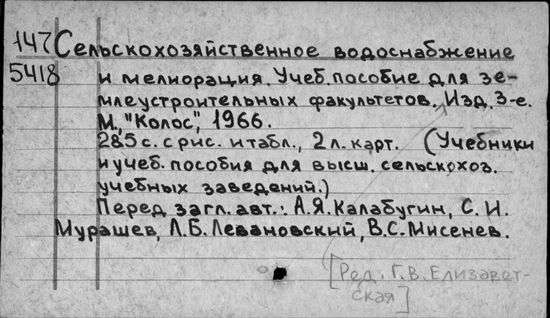 147 Сельскохозяйственное водоснабжение
5418 и мелиорация. Учеб. пособие для зе-
млеустроительных факультетов. Изд. 3-е.
М., "Колос", 1966.
285 с. с рис. и табл., 2 л. карт. (Учебники
и учеб. пособия для высш. сельскохоз.
учебных заведений.)
Перед загл. авт.: А.Я. Калабугин, С. И.
Мурашев, Л.Б. Левановский, В.С. Мисенев.
[Ред. Г. В. Елизавет-
ская]